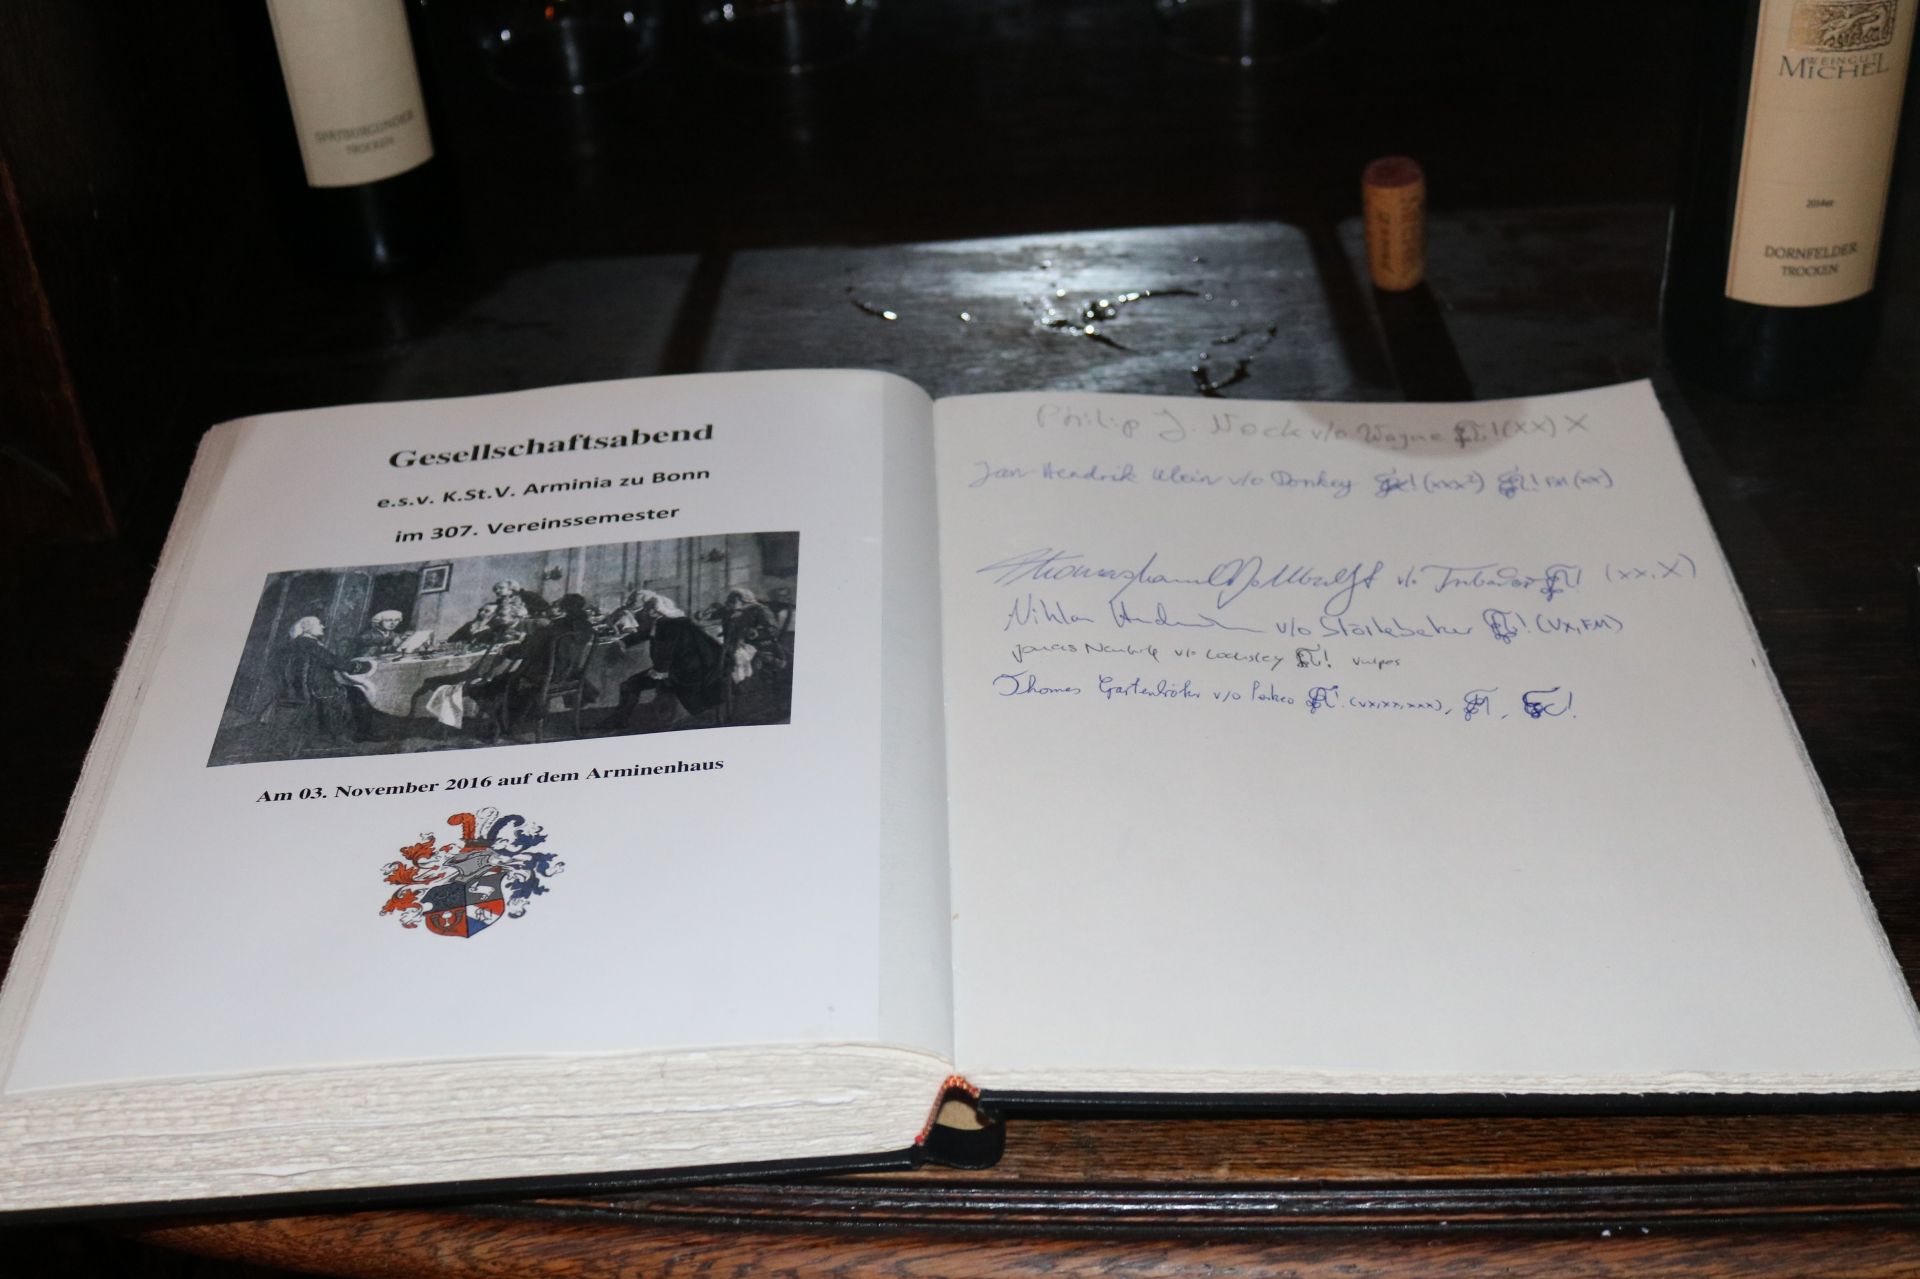 SPÄTBURGUNDER
TROCKEN
WEINGUT
MICHEL
2014er
DORNFELDER
TROCKEN
Gesellschaftsabend
e.s.v. K.St.V. Arminia zu Bonn
im 307. Vereinssemester
Am 03. November 2016 auf dem Arminenhaus
Philip J. Nock v/o Wayne ! (XX) X
Jan-Hendrik Klein v/o Donkey ! (xxx²) ! FM (xx)
v/o (XX, X)
Niklas v/o Störtebeker ! (VX, FM)
Jonas v/o Locksley ! vulpes
Thomas v/o Perkeo ! (VX, XX, XXX),